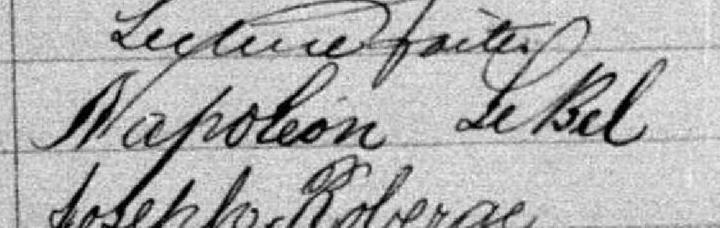 Lecture faite
Napoléon LeBel
Joseph Roberge